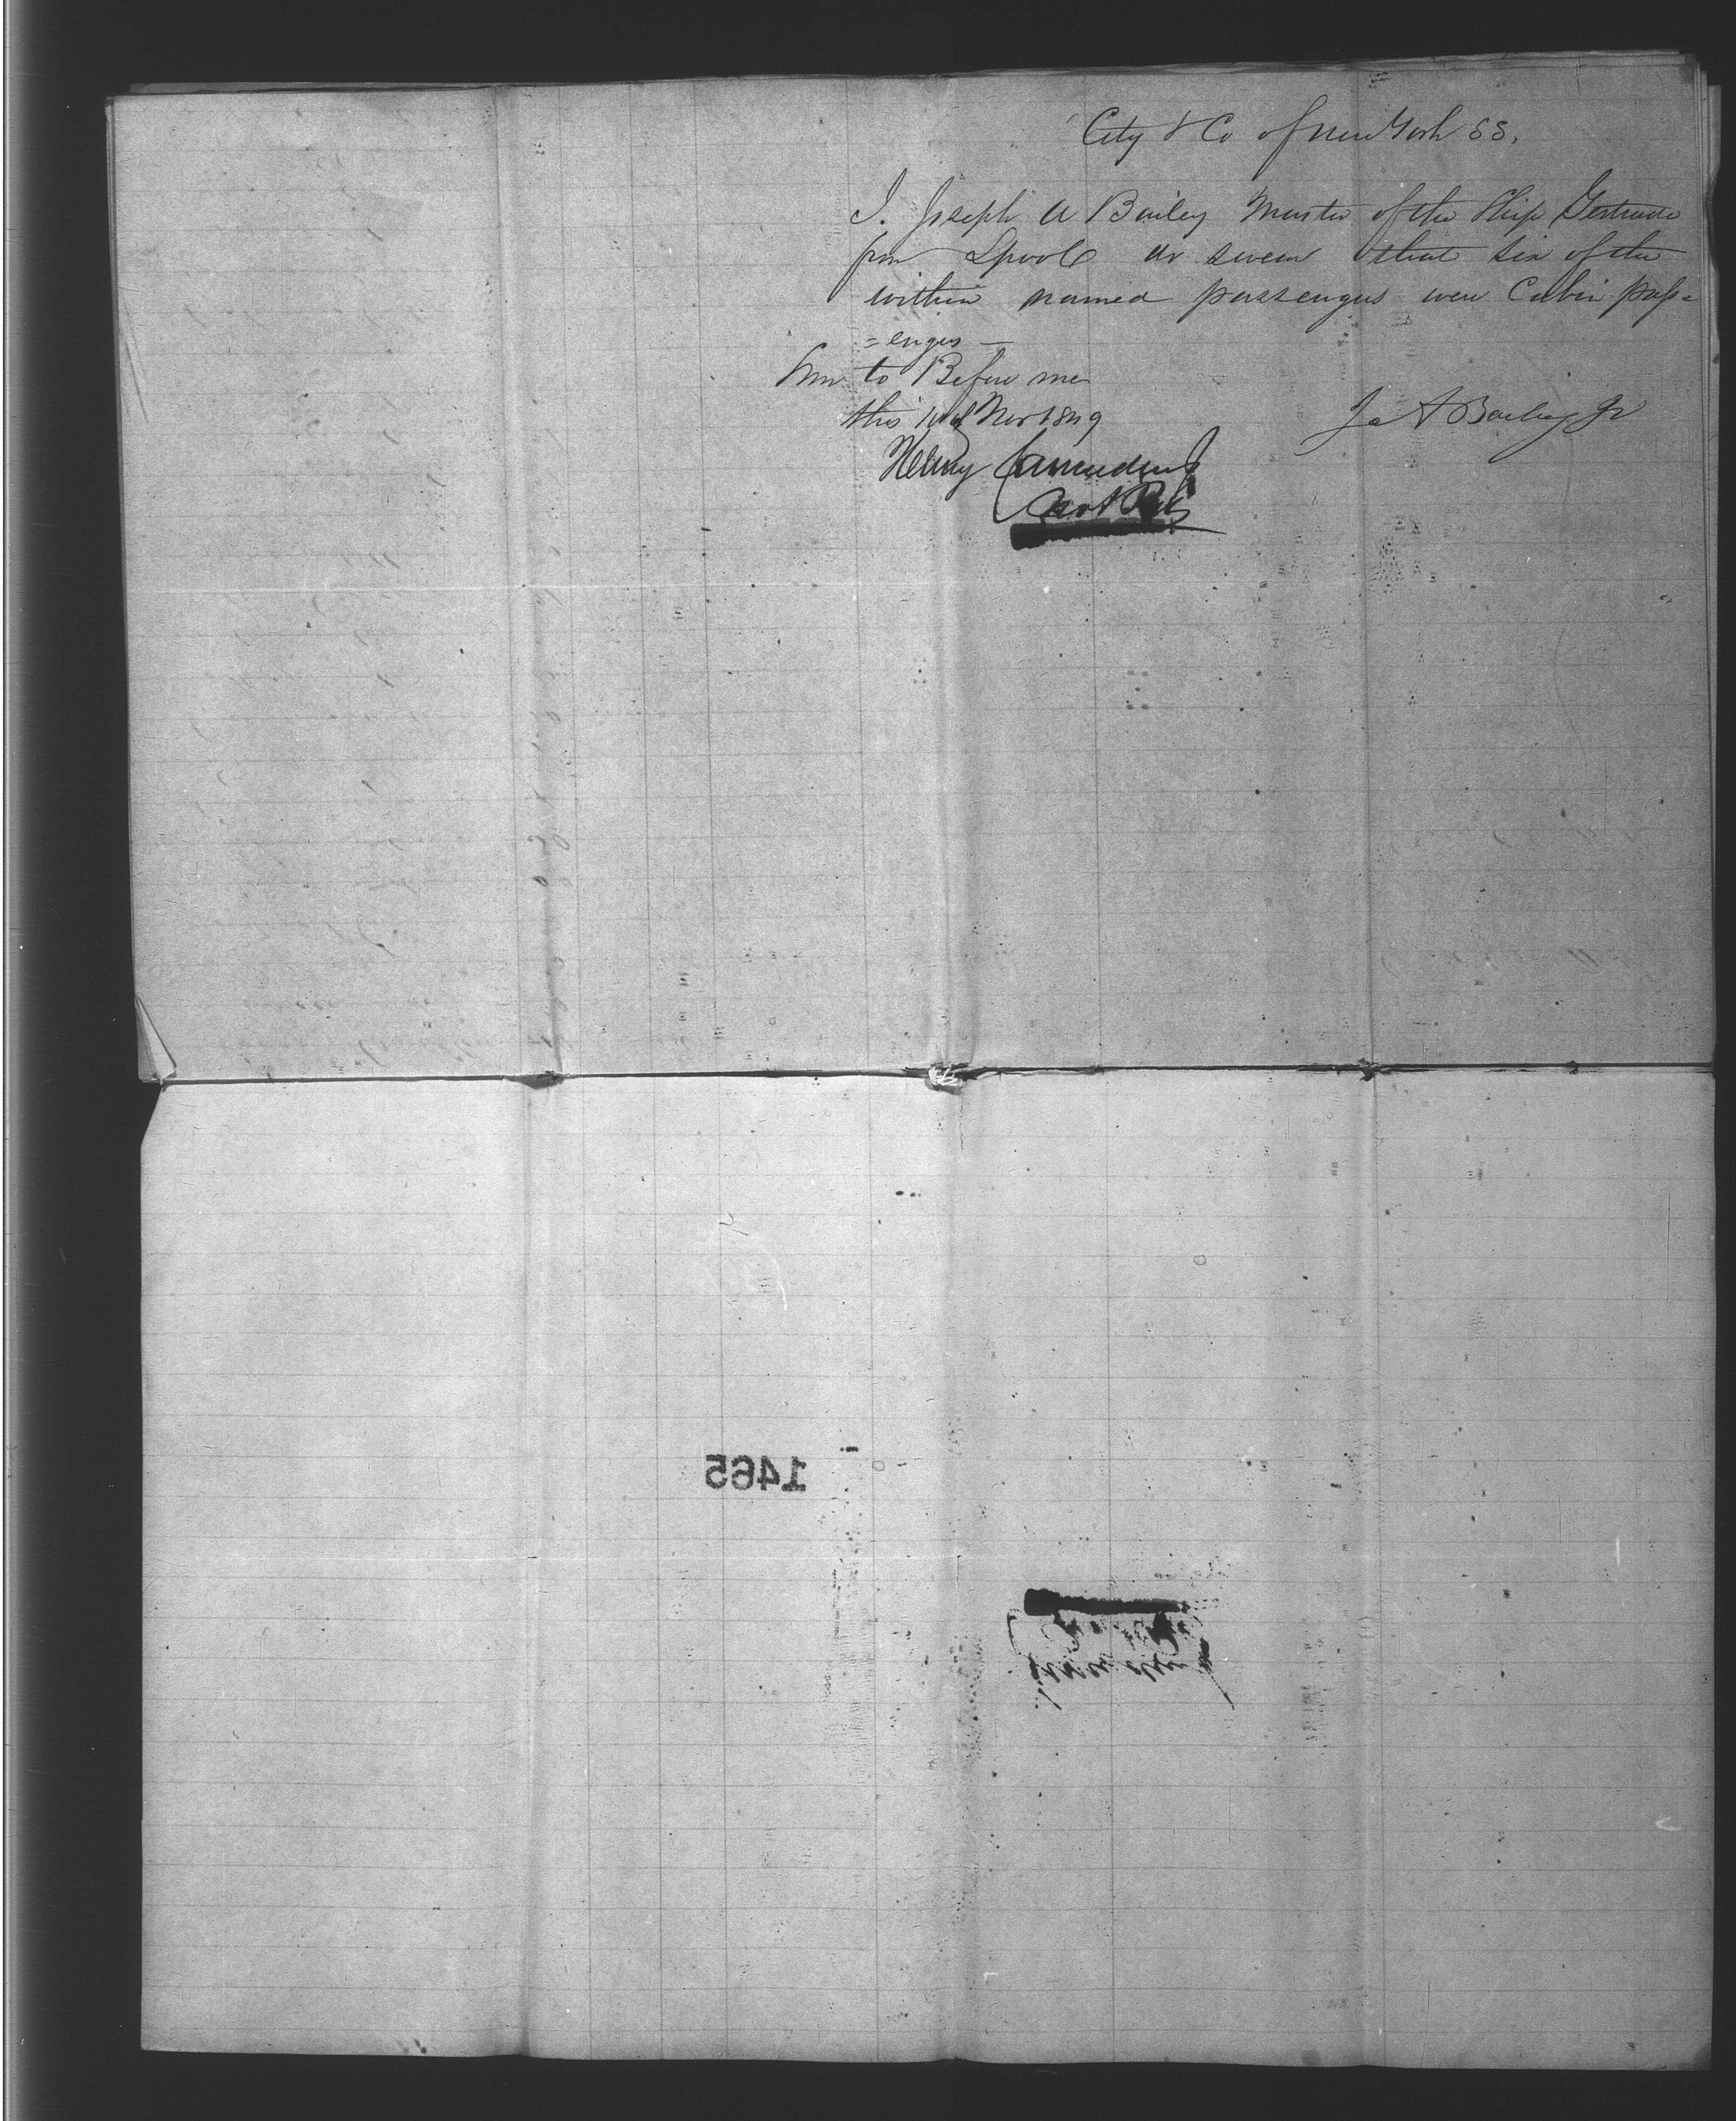 City & Co of New York SS.
I. Joseph A Bailey Master of the Ship Gertrude
from Lpool do swear that six of the
within named passengers were Cabin pass=
=engers —
Swn to Before me
this Nov 1849
J A Bailey Jr
Henry
Not Pub
1465